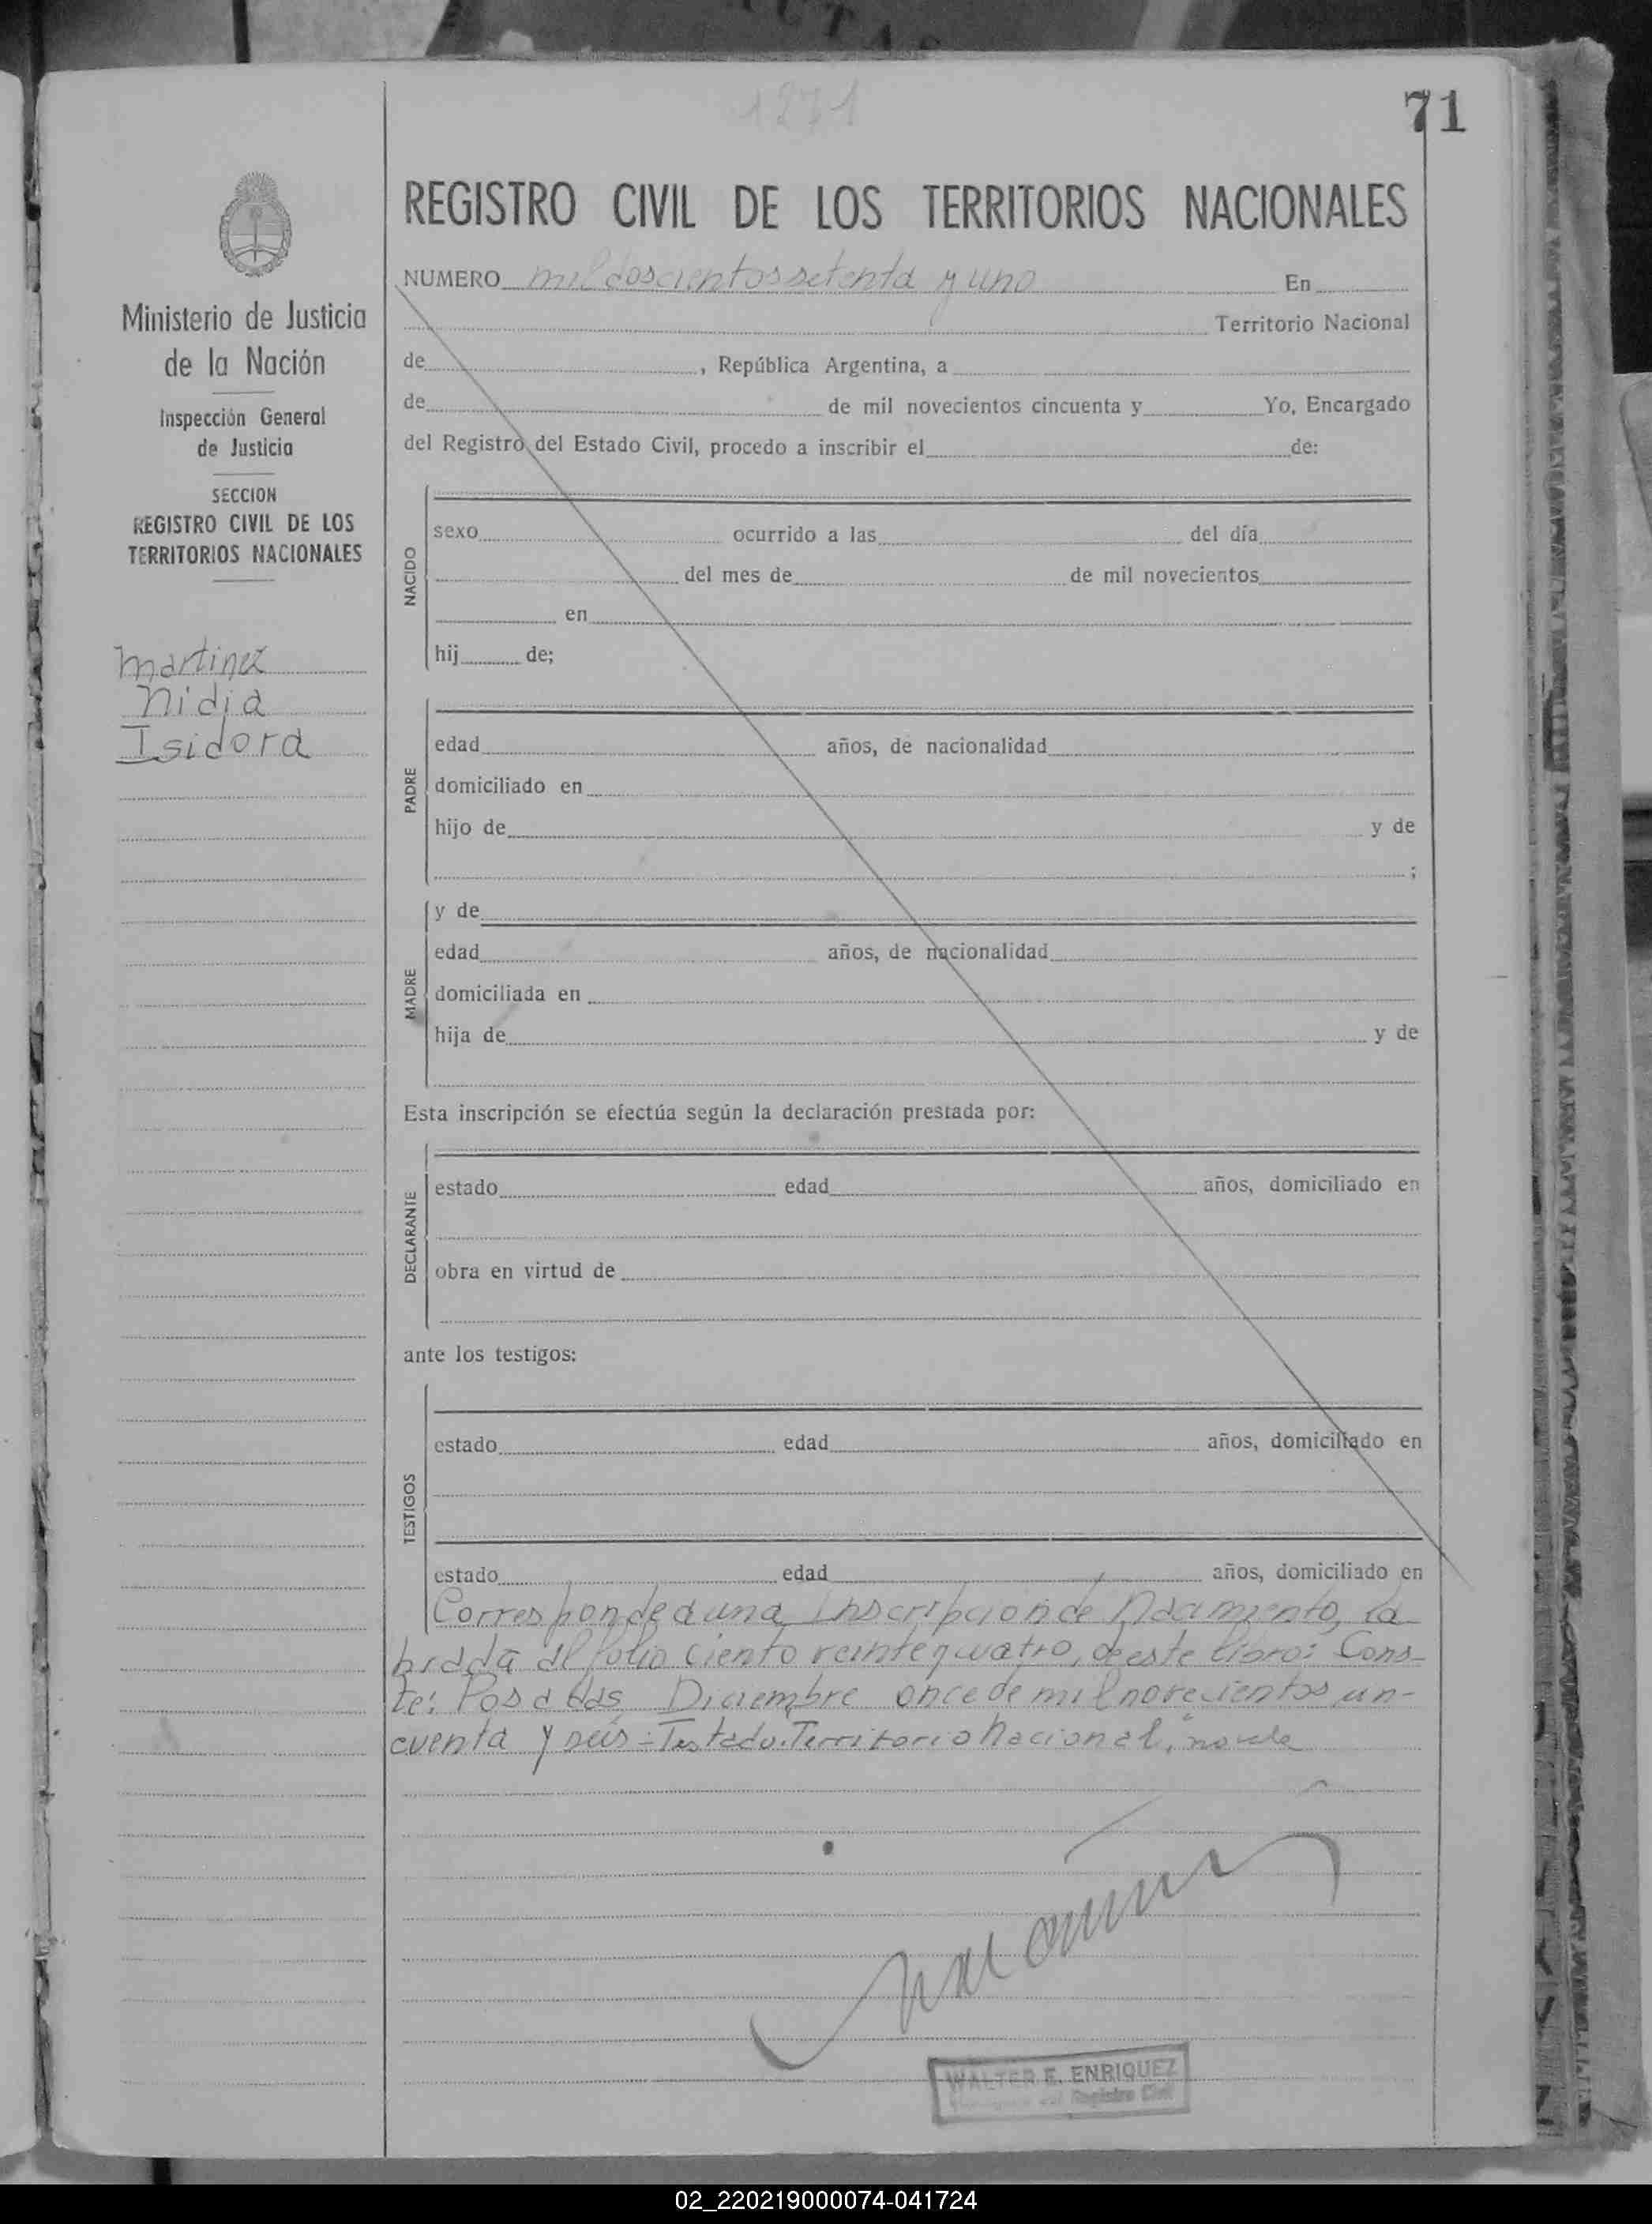 CTAS
1271
71
REGISTRO CIVIL DE LOS TERRITORIOS NACIONALES
NUMERO mil doscientos setenta y uno En
Territorio Nacional
de , República Argentina, a
de de mil novecientos cincuenta y Yo, Encargado
del Registro del Estado Civil, procedo a inscribir el de:
NACIDO
sexo ocurrido a las del día
del mes de de mil novecientos
en
hij de;
PADRE
edad años, de nacionalidad
domiciliado en
hijo de y de
;
MADRE
y de
edad años, de nacionalidad
domiciliada en
hija de y de
Esta inscripción se efectúa según la declaración prestada por:
DECLARANTE
estado edad años, domiciliado en
obra en virtud de
ante los testigos:
TESTIGOS
estado edad años, domiciliado en
estado edad años, domiciliado en
Corresponde a una Inscripcion de Nacimiento, la
brada al folio ciento veinte y cuatro, de este libro: Cons-
te: Posadas Diciembre once de mil novecientos cin-
cuenta y seis - Testado: Territorio Nacional, no vale
WALTER E. ENRIQUEZ
del Registro Civil
Ministerio de Justicia
de la Nación
Inspección General
de Justicia
SECCION
REGISTRO CIVIL DE LOS
TERRITORIOS NACIONALES
Martinez
Nidia
Isidora
02_220219000074-041724